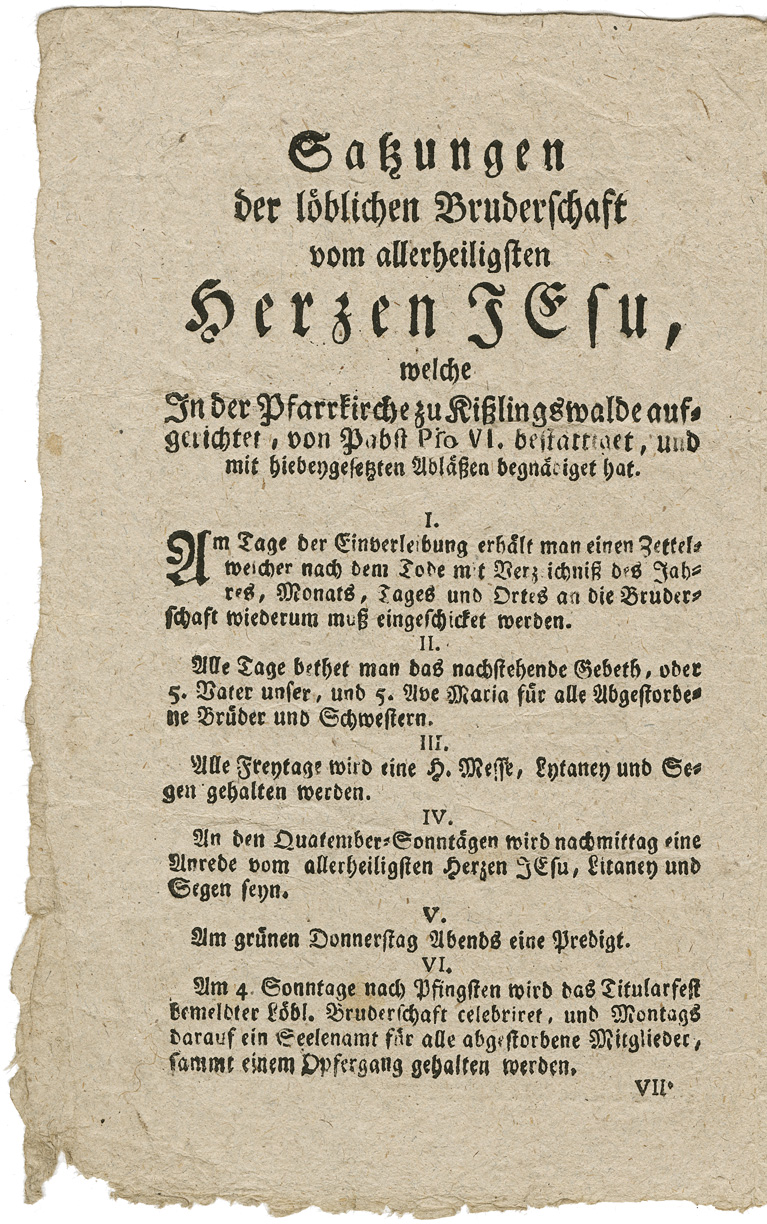 Satzungen
der löblichen Bruderschaft
vom allerheiligsten
Herzen JEsu,
welche
In der Pfarrkirche zu Kißlingswalde auf-
gerichtet, von Pabst Pio VI. bestättiget, und
mit hiebeygesetzten Abläßen begnädiget hat.
I.
Am Tage der Einverleibung erhält man einen Zettel-
welcher nach dem Tode mit Verzeichniß des Jah-
res, Monats, Tages und Ortes an die Bruder-
schaft wiederum muß eingeschicket werden.
II.
Alle Tage bethet man das nachstehende Gebeth, oder
5. Vater unser, und 5. Ave Maria für alle Abgestorbe-
ne Brüder und Schwestern.
III.
Alle Freytage wird eine H. Messe, Lytaney und Se-
gen gehalten werden.
IV.
An den Quatember-Sonntägen wird nachmittag eine
Anrede vom allerheiligsten Herzen JEsu, Litaney und
Segen seyn.
V.
Am grünen Donnerstag Abends eine Predigt.
VI.
Am 4. Sonntage nach Pfingsten wird das Titularfest
bemeldter Löbl. Bruderschaft celebriret, und Montags
darauf ein Seelenamt für alle abgestorbene Mitglieder,
sammt einem Opfergang gehalten werden.
VII.